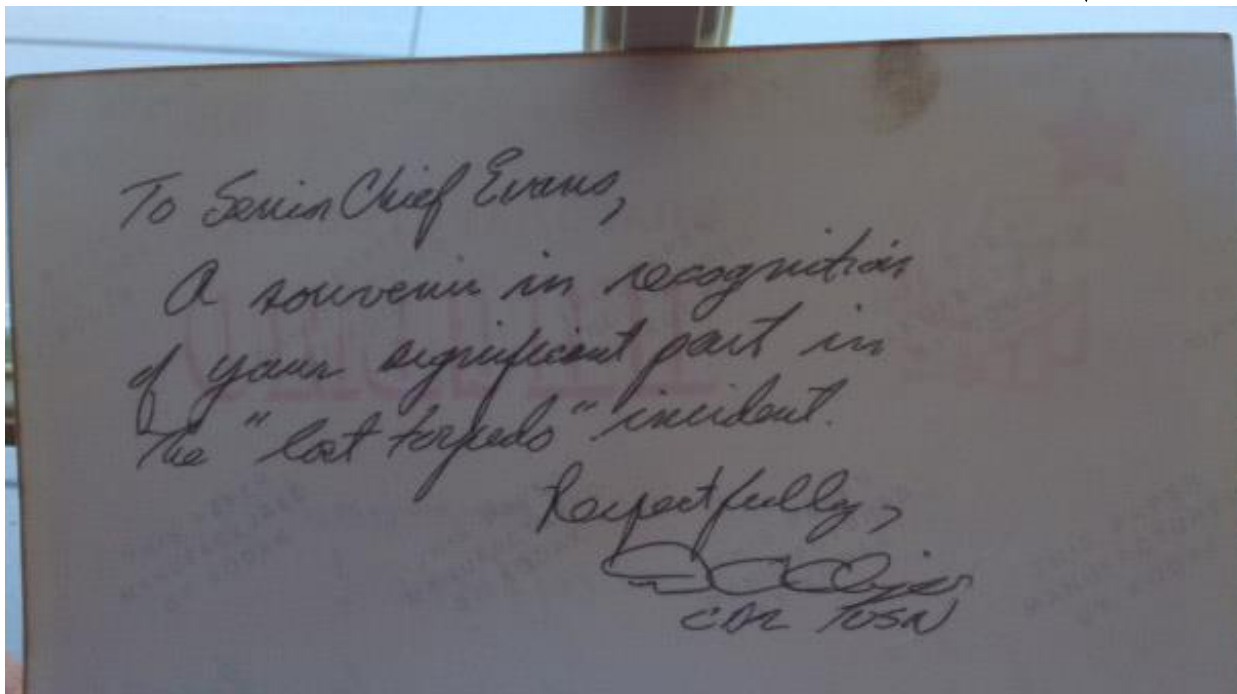 To Senior Chief Evans,
A souvenir in recognition
of your significant part in
the "lost torpedo" incident.
Respectfully,
CDR USN